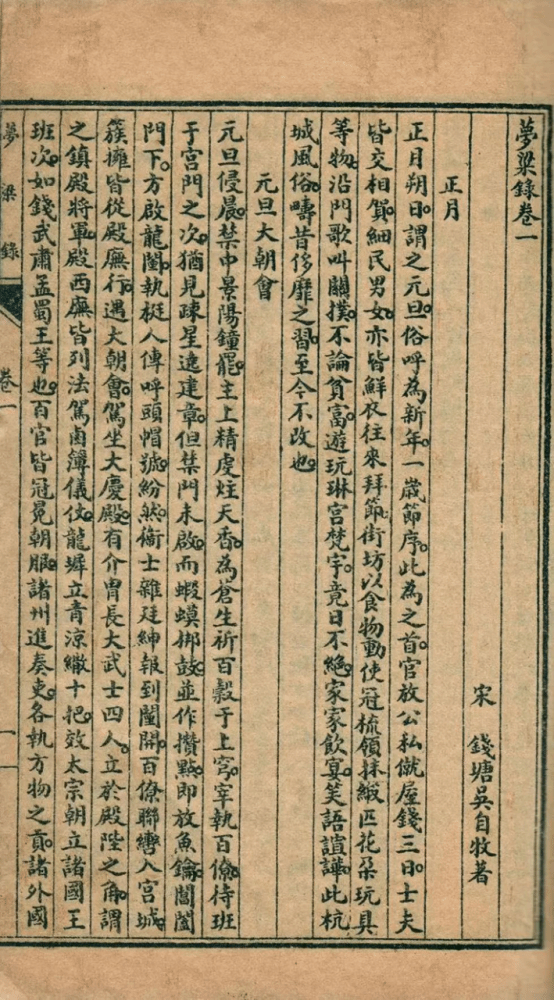 夢粱錄卷一
宋 錢塘吳自牧著
正月
正月朔日。謂之元旦。俗呼為新年。一歲節序。此為之首。官放公私僦屋錢三日。士夫
皆交相賀。細民男女。亦皆鮮衣往來拜節。街坊以食物動使冠梳領抹緞匹花朵玩具
等物。沿門歌叫關撲。不論貧富。遊玩琳宮梵宇。竟日不絕。家家飲宴。笑語諠譁。此杭
城風俗。疇昔侈靡之習。至今不改也。
元旦大朝會
元旦侵晨。禁中景陽鐘罷。主上精虔炷天香。為蒼生祈百穀于上穹。宰執百僚。待班
于宮門之次。猶見疎星遶建章。但禁門未啟。而蝦蟆梆鼓。並作攢點。即放魚鑰。閶闔
門下。方啟龍闈。執梃人傳呼頭帽號。紛然衞士雜廷紳報到闈開。百僚聯轡入宮城。
簇擁皆從殿廡行。遇大朝會。駕坐大慶殿。有介胄長大武士四人。立於殿陛之角。謂
之鎮殿將軍。殿西廡皆列法駕鹵簿儀仗。龍墀立青涼繖十把。效太宗朝立諸國王
班次。如錢武肅孟蜀王等也。百官皆冠冕朝服。諸州進奏吏。各執方物之貢。諸外國
夢粱錄 卷一 一